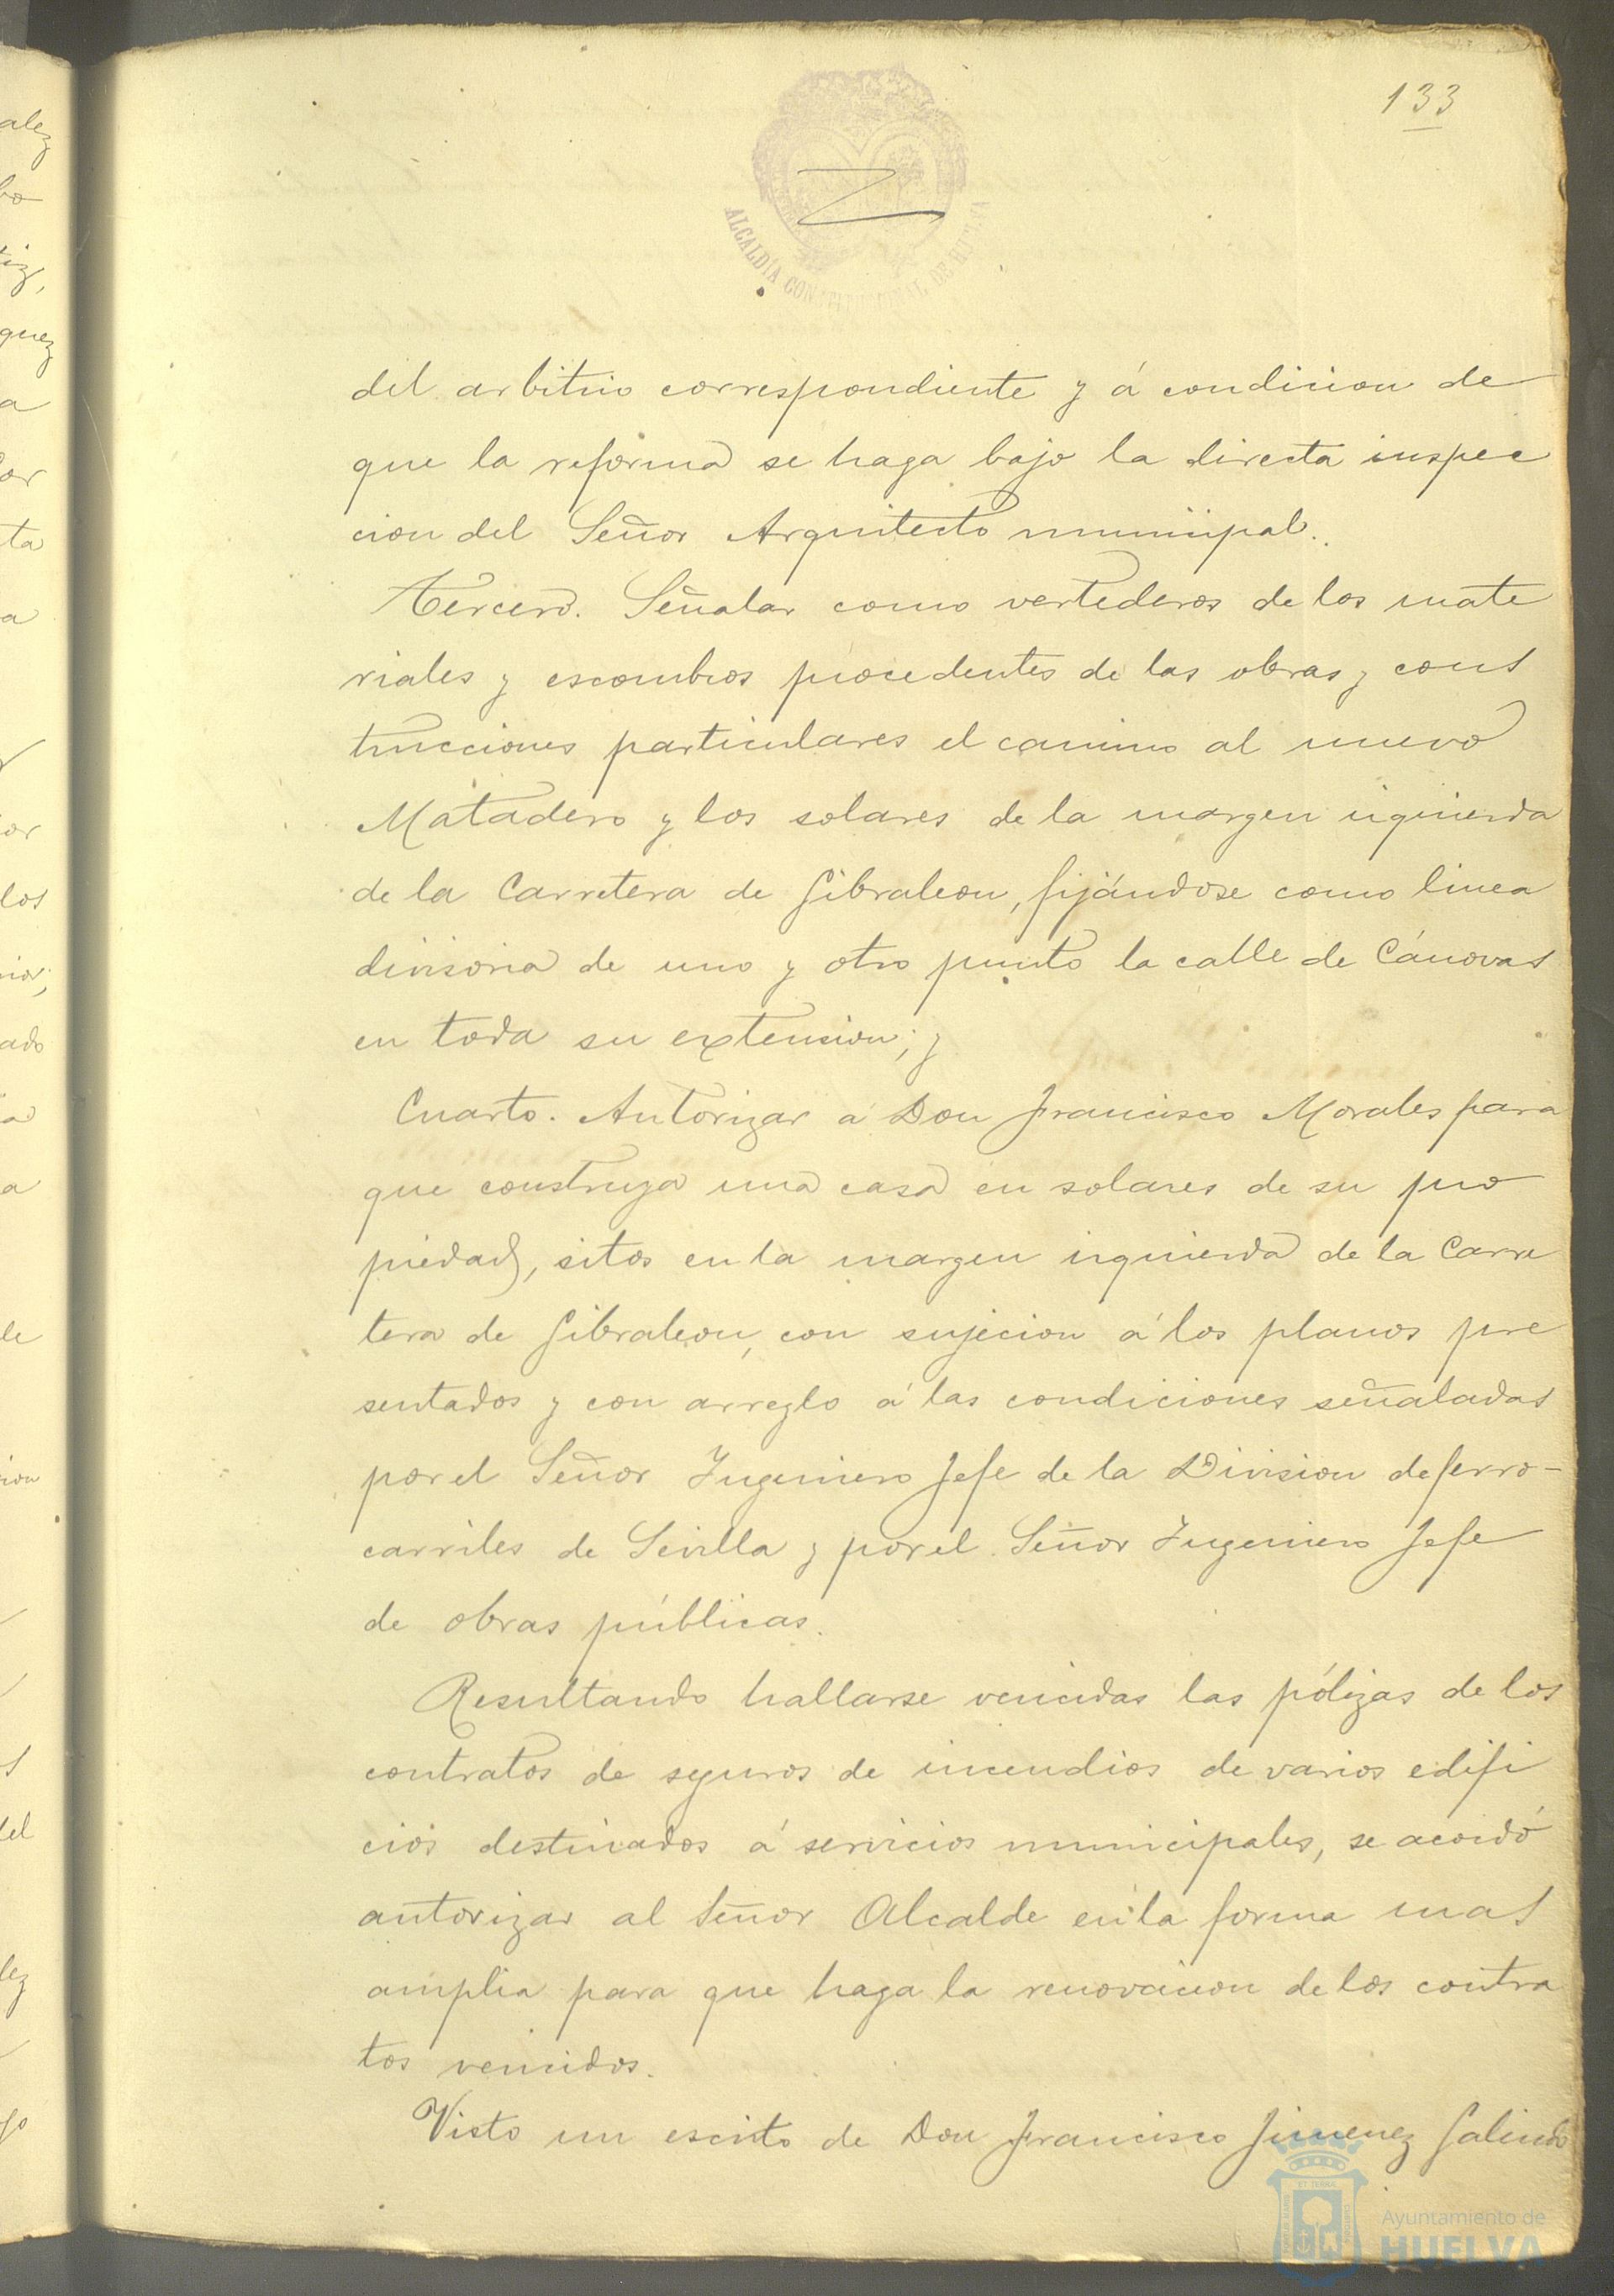 133
ALCALDIA CONSTITUCIONAL DE HUELVA
del arbitrio correspondiente y á condicion de
que la reforma se haga bajo la directa inspec
cion del Señor Arquitecto municipal.
Tercero. Señalar como vertederos de los mate
riales y escombros procedentes de las obras y cons
trucciones particulares el camino al nuevo
Matadero y los solares de la margen izquierda
de la Carretera de Gibraleon, fijándose como linea
divisoria de uno y otro punto la calle de Cánovas
en toda su extension; y
Cuarto. Autorizar á Don Francisco Morales para
que construya una casa en solares de su pro
piedad, sitos en la margen izquierda de la Carre
tera de Gibraleon, con sujecion á los planos pre
sentados y con arreglo á las condiciones señaladas
por el Señor Ingeniero Jefe de la Division de ferro-
carriles de Sevilla y por el Señor Ingeniero Jefe
de obras públicas.
Resultando hallarse vencidas las pólizas de los
contratos de seguros de incendios de varios edifi
cios destinados á servicios municipales, se acordó
autorizar al Señor Alcalde en la forma mas
amplia para que haga la renovacion de los contra
tos vencidos.
Visto un escrito de Don Francisco Jimenez Galindo
Ayuntamiento de
HUELVA